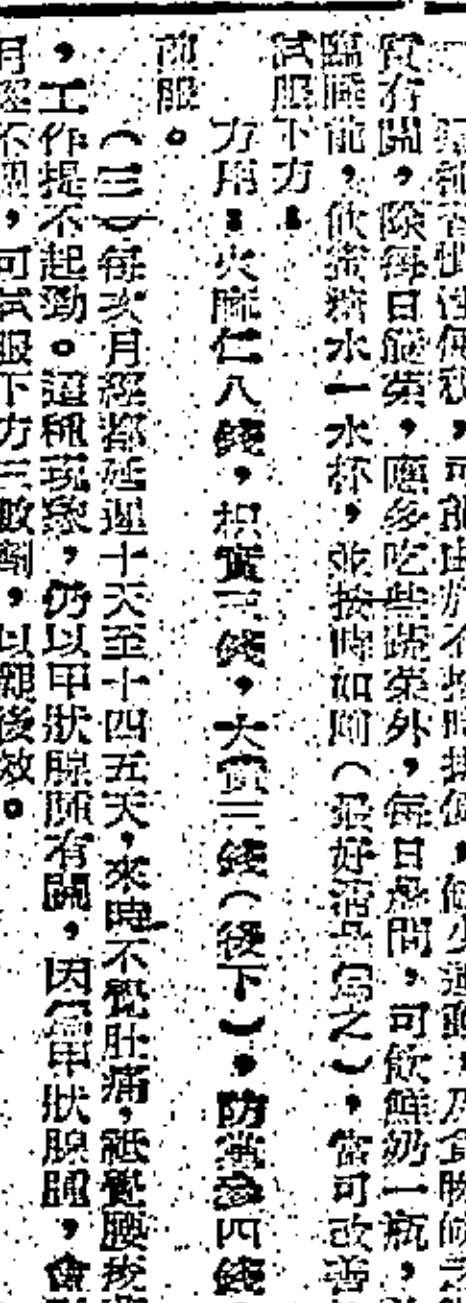 慣性便秘，可能由於不按時排便，缺少運動，及食物
質有關，除每日飯菜，應多吃些蔬菜外，每日晨間，可飲鮮奶一瓶，
臨睡前，飲蜜糖水一水杯，並按時如厠（最好清晨為之），當可改善
試服下方：
方用：火麻仁八錢，枳實三錢，大黃三錢（後下），防黨參四錢
前服。
（三）每次月經都延遲十天至十四五天，來時不覺肚痛，祇覺腰痠
，工作提不起勁。這種現象，仍以甲狀腺腫有關，因為甲狀腺腫，會
月經不調，可試服下方三數劑，以觀後效。